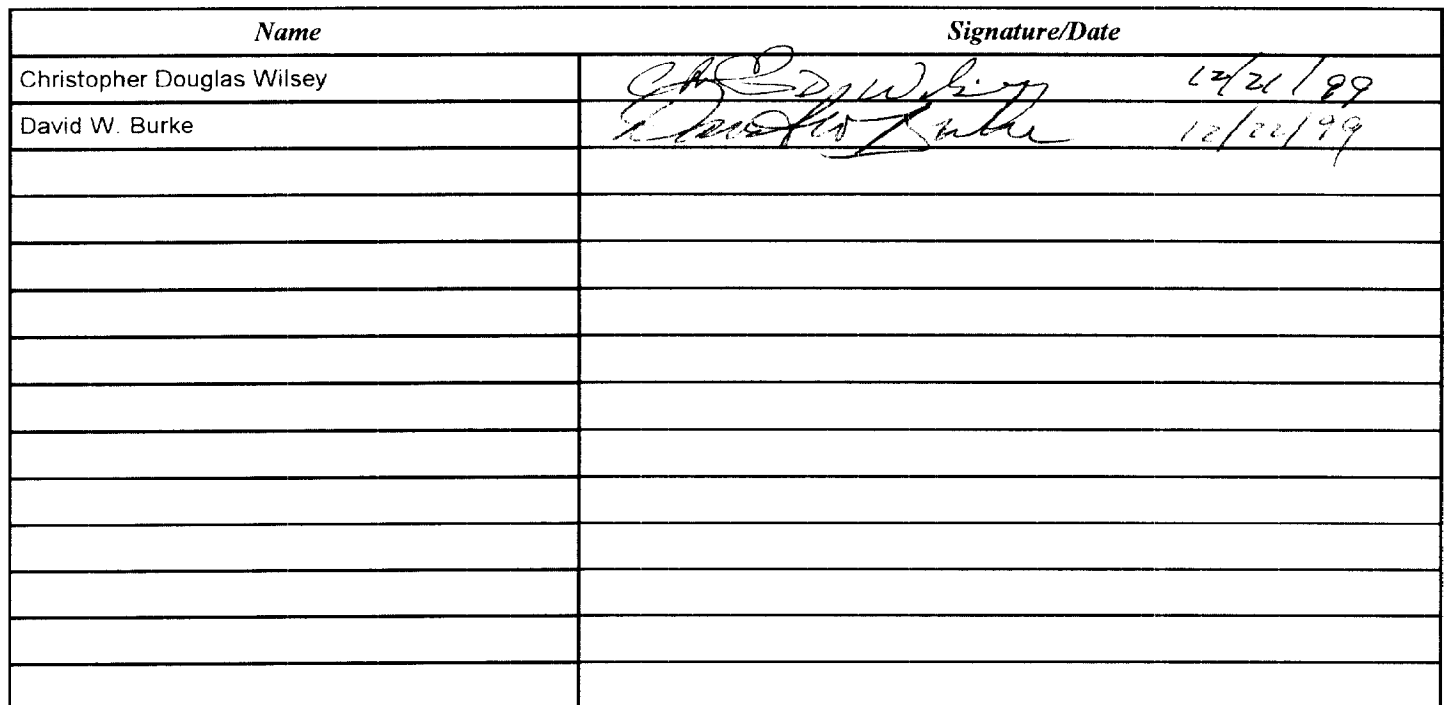 Name Signature/Date
Christopher Douglas Wilsey 12/21/99
David W. Burke David W Burke 12/22/99